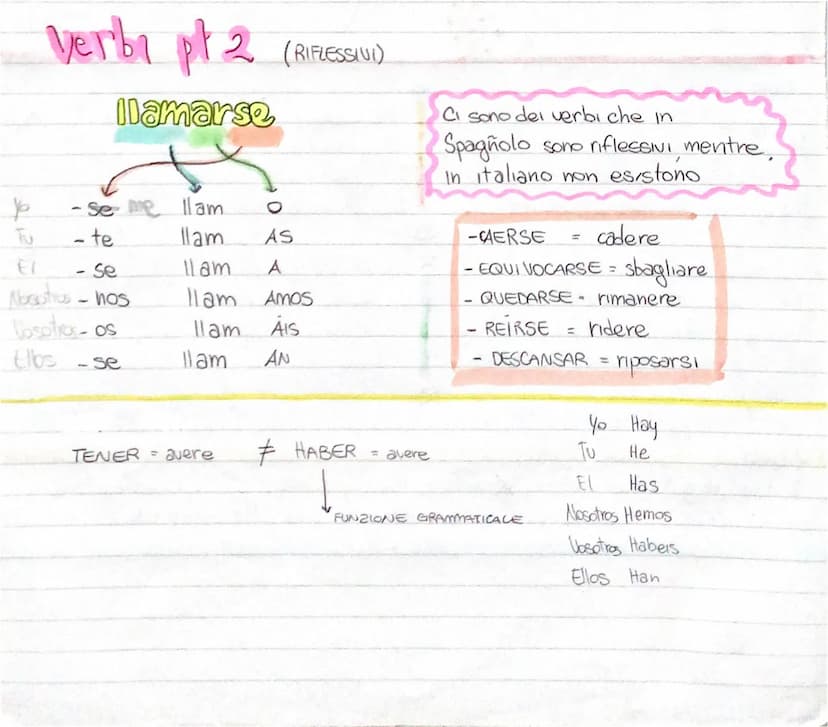 Verbi pt 2 (RIFLESSIVI)
llamarse
Yo - se me llam O
Tu - te llam AS
El - se llam A
Nosotros - nos llam AMOS
Vosotros - os llam ÁIS
Ellos - se llam AN
Ci sono dei verbi che in
Spagñolo sono riflessivi, mentre,
in italiano non esistono
- CAERSE = cadere
- EQUIVOCARSE = sbagliare
- QUEDARSE = rimanere
- REÍRSE = ridere
- DESCANSAR = riposarsi
TENER = avere ≠ HABER = avere
FUNZIONE GRAMMATICALE
Yo Hay
Tu He
El Has
Nosotros Hemos
Vosotros Habeis
Ellos Han